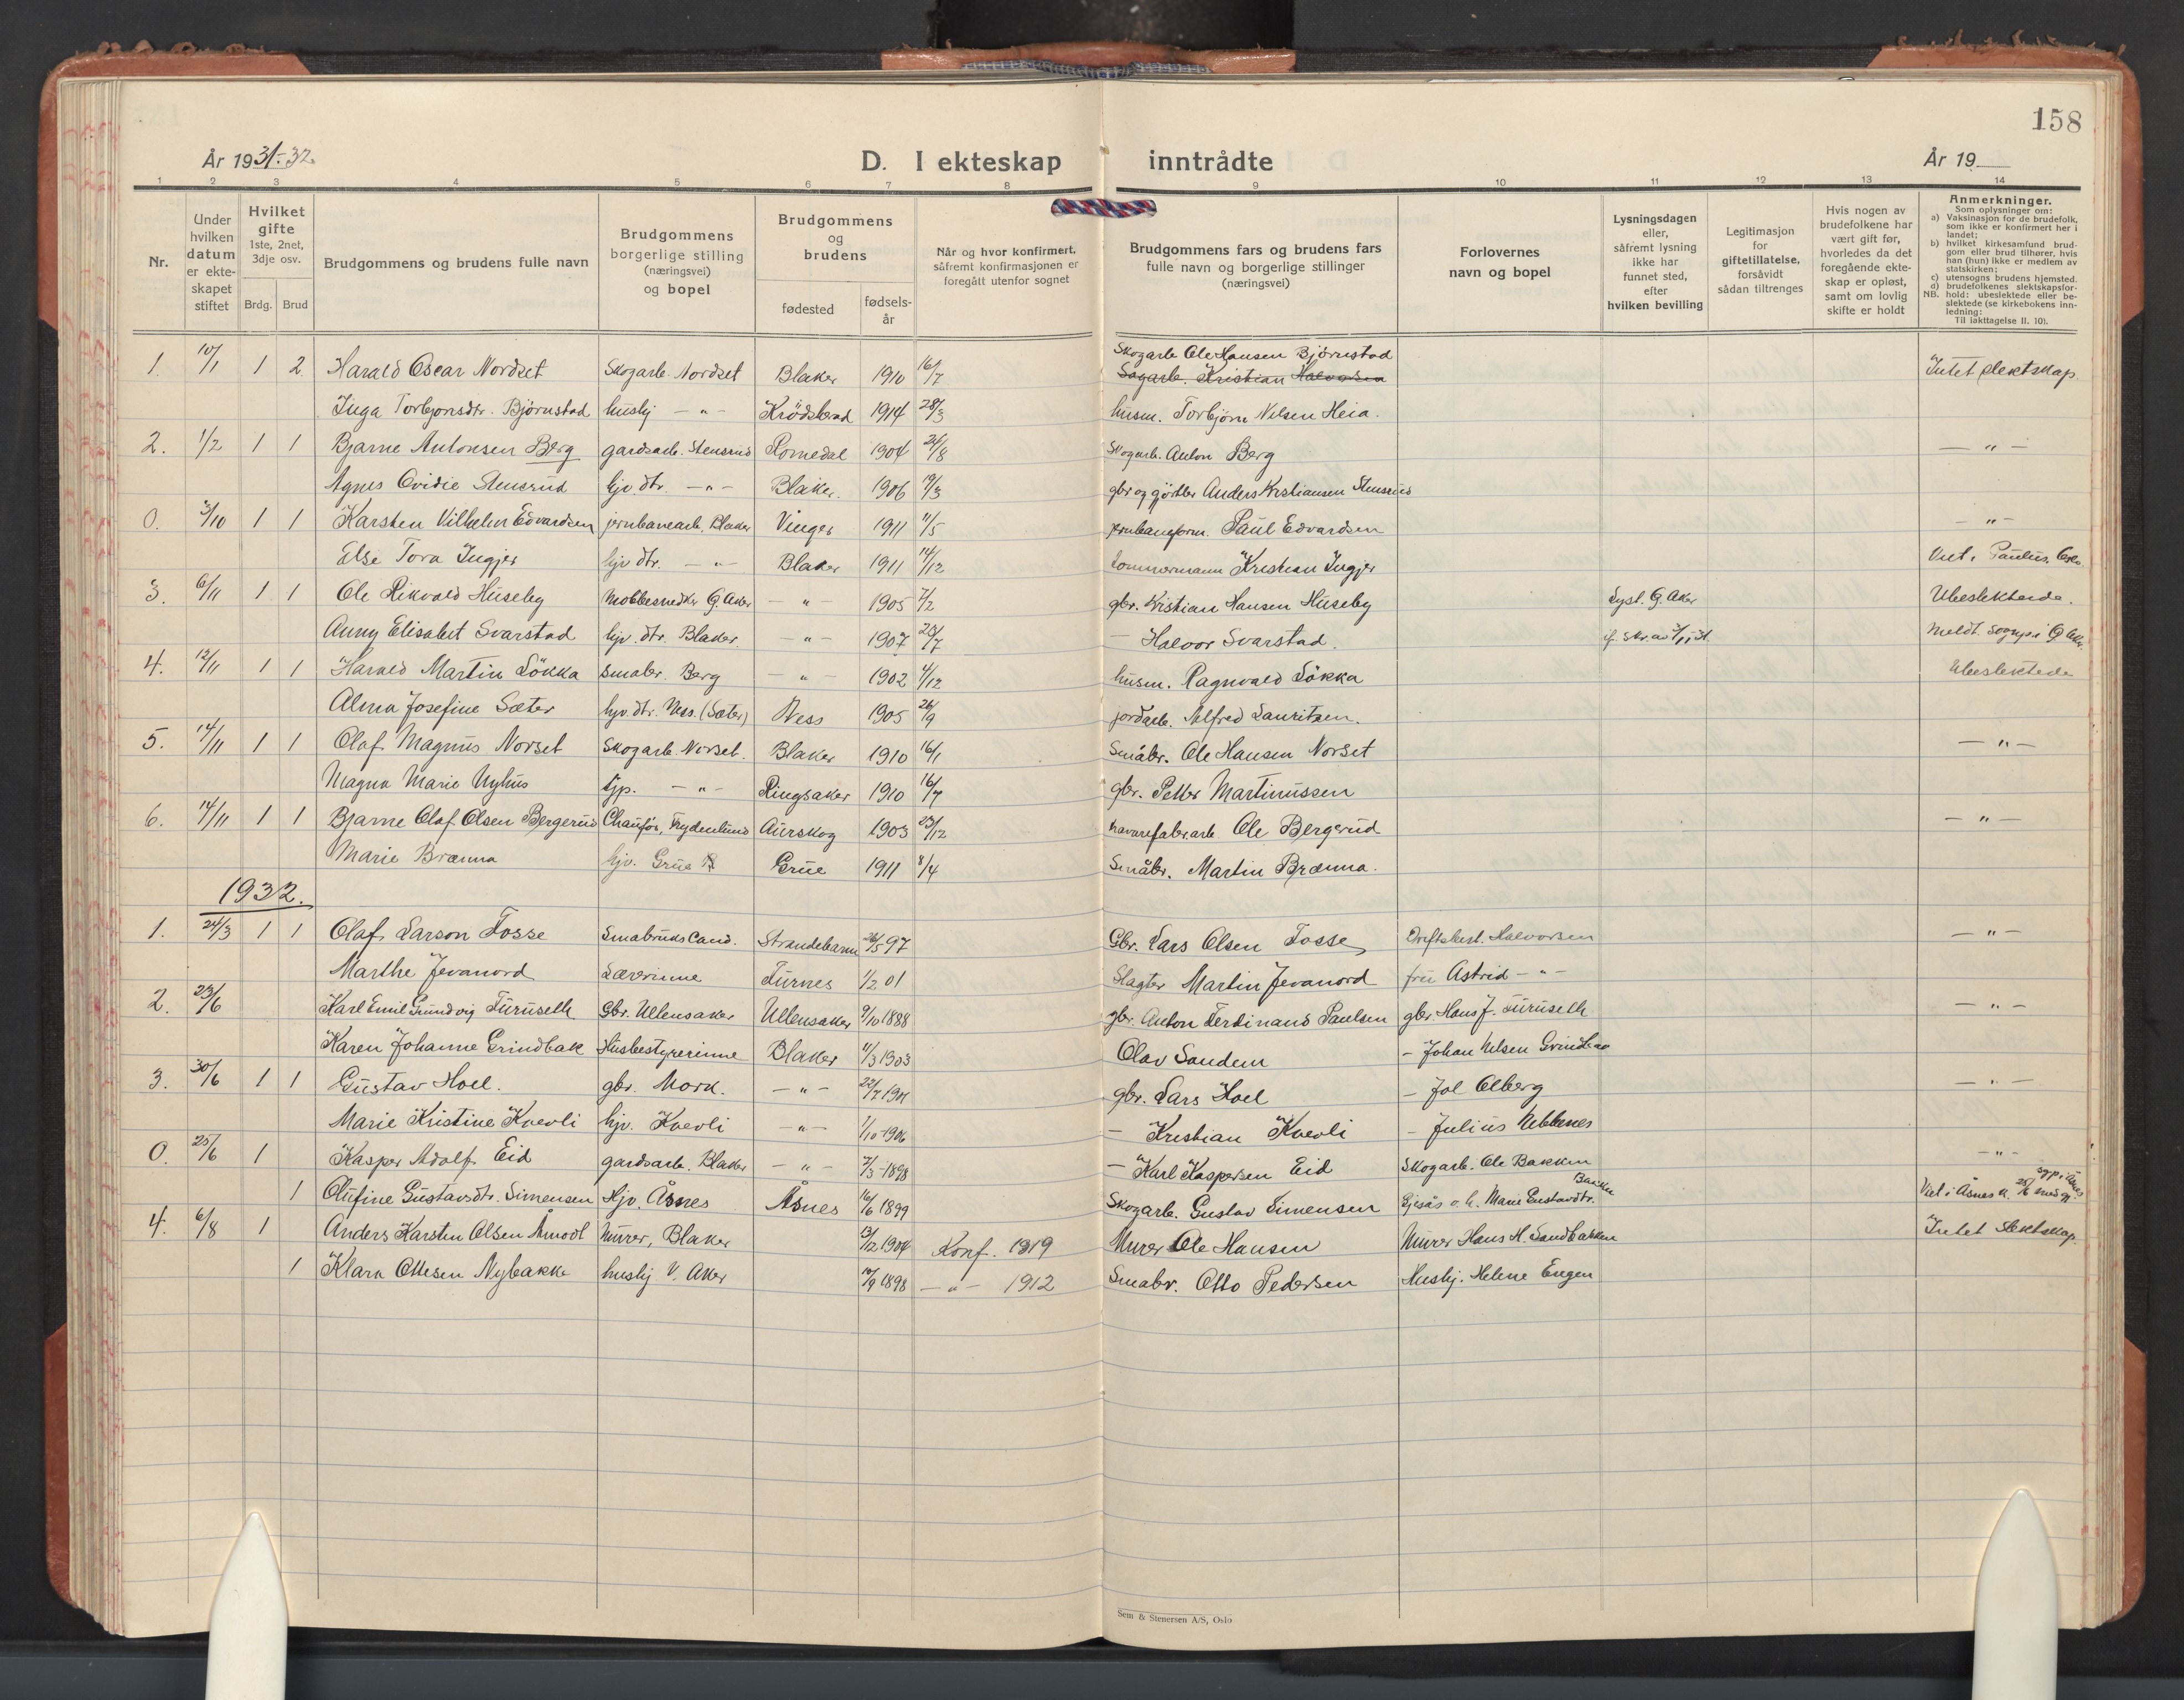 158
År 1931-32.
D. I ekteskap inntrådte
År 19
1 2 3 4 5 6 7 8 9 10 11 12 13 14
Nr.
Under hvilken datum er ekteskapet stiftet
Hvilket gifte 1ste, 2net, 3dje osv.
Brdg. Brud
Brudgommens og brudens fulle navn
Brudgommens borgerlige stilling (næringsvei) og bopel
Brudgommens og brudens
fødested fødsels-år
Når og hvor konfirmert, såfremt konfirmasjonen er foregått utenfor sognet
Brudgommens fars og brudens fars fulle navn og borgerlige stillinger (næringsvei)
Forlovernes navn og bopel
Lysningsdagen eller, såfremt lysning ikke har funnet sted, efter hvilken bevilling
Legitimasjon for giftetillatelse, forsåvidt sådan tiltrenges
Hvis nogen av brudefolkene har vært gift før, hvorledes da det foregående ekteskap er opløst, samt om lovlig skifte er holdt
Anmerkninger.
Som oplysninger om:
a) Vaksinasjon for de brudefolk, som ikke er konfirmert her i landet;
b) hvilket kirkesamfund brudgom eller brud tilhører, hvis han (hun) ikke er medlem av statskirken;
c) utensogns brudens hjemsted.
d) brudefolkenes slektskapsforhold: ubeslektede eller beslektede (se kirkebokens innledning:
NB.
Til iakttagelse II. 10).
1. 10/1 1 2 Harald Oscar Nordset Skogarb. Nordset Blaker 1910 16/7 Skogarb Ole Hansen Bjørnstad Intet slektskap.
Sagarb. Kristian Halvorsen
Inga Torbjonsdtr. Bjørnstad hushj - " - Krödsherad 1914 28/3 husm. Torbjörn Nilsen Heia.
2. 1/2 1 1 Bjarne Antonsen Berg gardsarb. Stensrud Romedal 1904 24/8 Skogarb. Anton Berg - " -
Agnes Ovidie Stensrud hjv dtr. - " - Blaker. 1906 19/3 gbr og gjörtler Anders Kristiansen Stensrud
0. 3/10 1 1 Karsten Vilhelm Edvardsen jernbanearb. Blaker Vinger 1911 11/5 jernbaneform. Paul Edvardsen - " -
Else Tora Ingjer hjv dtr. - " - Blaker 1911 14/12 Tømmermann Kristian Ingjer Viet i Paulus, Oslo.
3. 6/11 1 1 Ole Rikvald Huseby Möbbesnedker G. Aker - " - 1905 7/2 gbr. Kristian Hansen Huseby Lyst. G. Aker Ubeslektede.
Anny Elisabet Svarstad hjv. dtr. Blaker. - " - 1907 28/7 - Halvor Svarstad. Meldt sognepr. i G Aker.
4. 12/11 1 1 Harald Martin Lökka smabr. Berg - " - 1902 4/12 husm. Ragnvald Lökka Ubeslektede
Alma Josefine Sæter hjv. dtr. Nes. (Sæter) Ness 1905 26/9 jordarb. Alfred Lauritzen.
5. 14/11 1 1 Olaf Magnus Norset Skogarb. Norset. Blaker 1910 16/1 Småbr. Ole Hansen Norset - " -
Magna Marie Nyhus tjp. - " - Ringsaker 1910 16/7 gbr. Petter Martinussen
6. 14/11 1 1 Bjarne Olaf Olsen Bergerud Chauför, Frydenlund Aurskog 1903 23/12 travarefabr.arb. Ole Bergerud - " -
Marie Brænna hjv. Grue Grue 1911 8/4 Småbr. Martin Brænna.
1932.
1. 24/3 1 1 Olaf Larson Fosse Smabruks Cand. Strandebarm 26/5 97 Gbr. Lars Olsen Fosse Driftsbest. Halvorsen - " -
Marthe Jevanord Lærerinne Furnes 1/2 01 Slagter Martin Jevanord fru Astrid - " -
2. 23/6 Karl Emil Gundvig Furuseth Gbr. Ullensaker Ullensaker 9/10 1888 gbr. Anton Ferdinand Paulsen gbr. Hans J. Furuseth - " -
Karen Johanne Grindbak Husbestyrerinne Blaker 11/3 1903 Olav Sandem - Johan Nilsen Grindbak
3. 30/6 1 1 Gustav Hoel. gbr. Mork. - " - 22/7 1901 gbr. Lars Hoel - Jol Olberg - " -
Marie Kristine Kvevli hjv. Kvevli - " - 1/10-1906 - Kristian Kvevli - Julius Nebbenes
0. 25/6 1 Kasper Adolf Eid gardsarb. Blaker - " - 7/3-1898 - Karl Kaspersen Eid Skogarb. Ole Bakken - " -
1 Olufine Gustavsdtr. Simensen Hjv. Åsnes Åsnes 16/6 1899 Skogarb. Gustav Simensen Gjesås o. h. Marie Gustavdtr. Bakken Viet i Åsnes k. 25/6 sogp. i Åsnes
4. 6/8 1 Anders Karsten Olsen Åmodt Murer, Blaker 13/12 1904 Konf. 1919 Murer Ole Hansen Murer Hans H. Sandbakken Intet slektskap.
1 Klara Ottesen Nybakke hushj V. Aker 10/9 1898 - " - 1912 Smabr. Otto Pedersen Hushj. Helene Engen
Sem & Stenersen A/S, Oslo